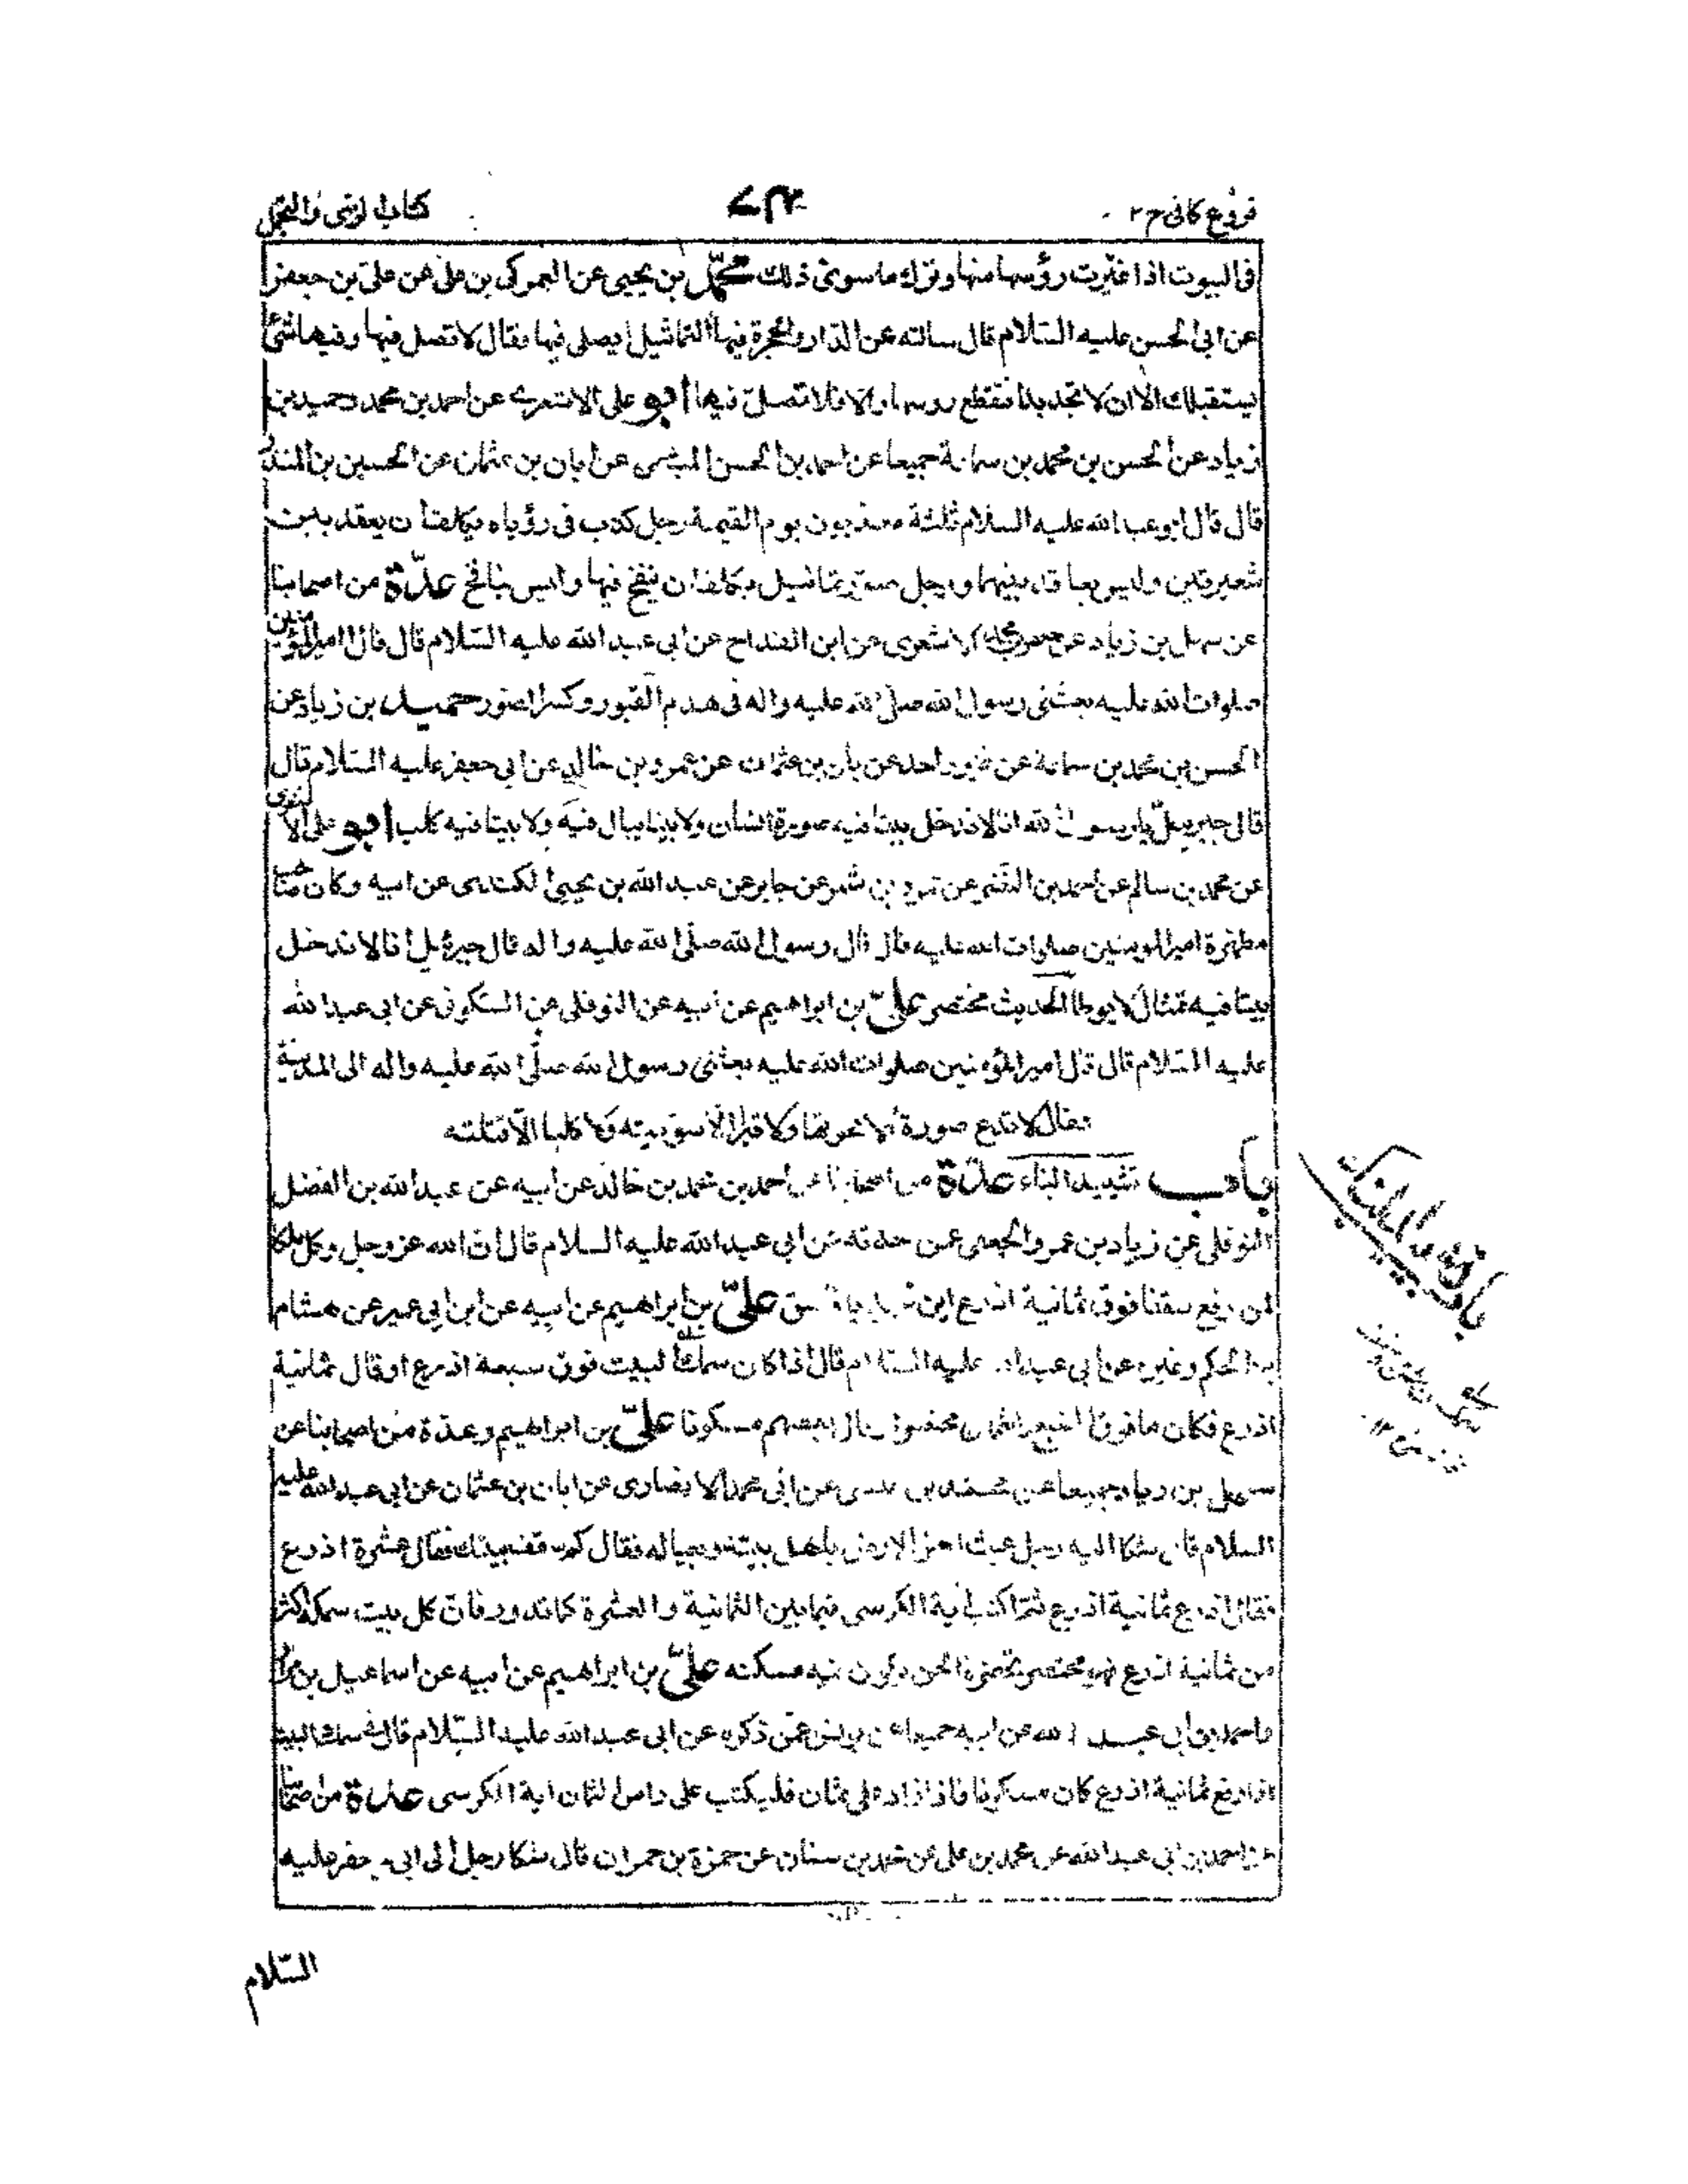 فروع كافى ج٢
كتاب الزى والتجمل
فى البيوت اذا غيّرت رؤسها منها وترك ما سوى ذلك محمّد بن يحيى عن العمركى بن على عن على بن جعفر
عن ابى الحسن عليه السّلام قال سالته عن الدّار والحجرة فيها التماثيل ايصلى فيها فقال لا تصل فيها وفيها شئ
يستقبلك الا ان لا تجد بدا فتقطع روسها والا فلا تصلّ فيها ابو على الاشعرى عن احمد بن محمد وحميد بن
زياد عن الحسن بن محمد بن سماعة جميعا عن احمد بن الحسن الميثمى عن ابان بن عثمان عن الحسين بن المنذر
قال قال ابو عبد الله عليه السلام ثلثة معذبون يوم القيمة رجل كذب فى رؤياه يكلف ان يعقد بين
شعيرتين وليس بعاقد بينهما ورجل صوّر تماثيل يكلف ان ينفخ فيها وليس بنافخ عدّة من اصحابنا
عن سهل بن زياد عن جعفر بن محمد الاشعرى عن ابن القداح عن ابى عبد الله عليه السّلام قال قال امير المؤمنين
صلوات الله عليه بعثنى رسول الله صلّى الله عليه واله فى هدم القبور وكسر الصور حميد بن زياد عن
الحسن بن محمد بن سماعة عن غير واحد عن ابان بن عثمان عن عمرو بن خالد عن ابى جعفر عليه السّلام قال
قال جبرئيل يا رسول الله انا لا ندخل بيتا فيه صورة انسان ولا بيتا يبال فيه ولا بيتا فيه كلب ابو على الاشعرى
عن محمد بن سالم عن احمد بن النضر عن عمرو بن شمر عن جابر عن عبد الله بن يحيى الكندى عن ابيه وكان صاحب
مطهرة امير المومنين صلوات الله عليه قال قال رسول الله صلّى الله عليه واله قال جبرئيل انا لا ندخل
بيتا فيه تمثال لا يوطا الحديث مختصر علىّ بن ابراهيم عن ابيه عن النوفلى عن السكونى عن ابى عبد الله
عليه السّلام قال قال امير المؤمنين صلوات الله عليه بعثنى رسول الله صلّى الله عليه واله الى المدينة
فقال لا تدع صورة الا محوتها ولا قبرا الّا سوّيته ولا كلبا الّا قتلته
باب تشييد البناء عدّة من اصحابنا عن احمد بن محمد بن خالد عن ابيه عن عبد الله بن الفضل
النوفلى عن زياد بن عمرو الجعفى عمن حدثه عن ابى عبد الله عليه السلام قال ان الله عز وجل وكل ملكا
لمن رفع سقفا فوق ثمانية اذرع اين تريد يا فاسق علىّ بن ابراهيم عن ابيه عن ابن ابى عمير عن هشام
بن الحكم وغيره عن ابى عبد الله عليه السّلام قال اذا كان سمك البيت فوق سبعة اذرع او قال ثمانية
اذرع فكان ما فوق السبع والثمان محتضرا وقال بعضهم مسكونا علىّ بن ابراهيم وعدّة من اصحابنا عن
سهل بن زياد جميعا عن محمد بن عيسى عن ابى محمد الانصارى عن ابان بن عثمان عن ابى عبد الله عليه
السلام قال شكا اليه رجل عبث اهل الارض باهل بيته وبعياله فقال كم سقف بيتك فقال عشرة اذرع
فقال اذرع ثمانية اذرع ثم اكتب اية الكرسى فيما بين الثمانية والعشرة كما تدور فان كل بيت سمكه اكثر
من ثمانية اذرع فهو محتضر تحضره الجن يكون فيه مسكنه علىّ بن ابراهيم عن ابيه عن اسماعيل بن مرار
واحمد بن ابى عبد الله عن ابيه جميعا عن يونس عمّن ذكره عن ابى عبد الله عليه السّلام قال فى سمك البيت
اذا رفع ثمانية اذرع كان مسكونا فاذا زاد على ثمان فليكتب على راس الثمان اية الكرسى عدّة من اصحابنا
عن احمد بن ابى عبد الله عن محمد بن على عن محمد بن سنان عن حمزة بن حمران قال شكا رجل الى ابى جعفر عليه
السّلام